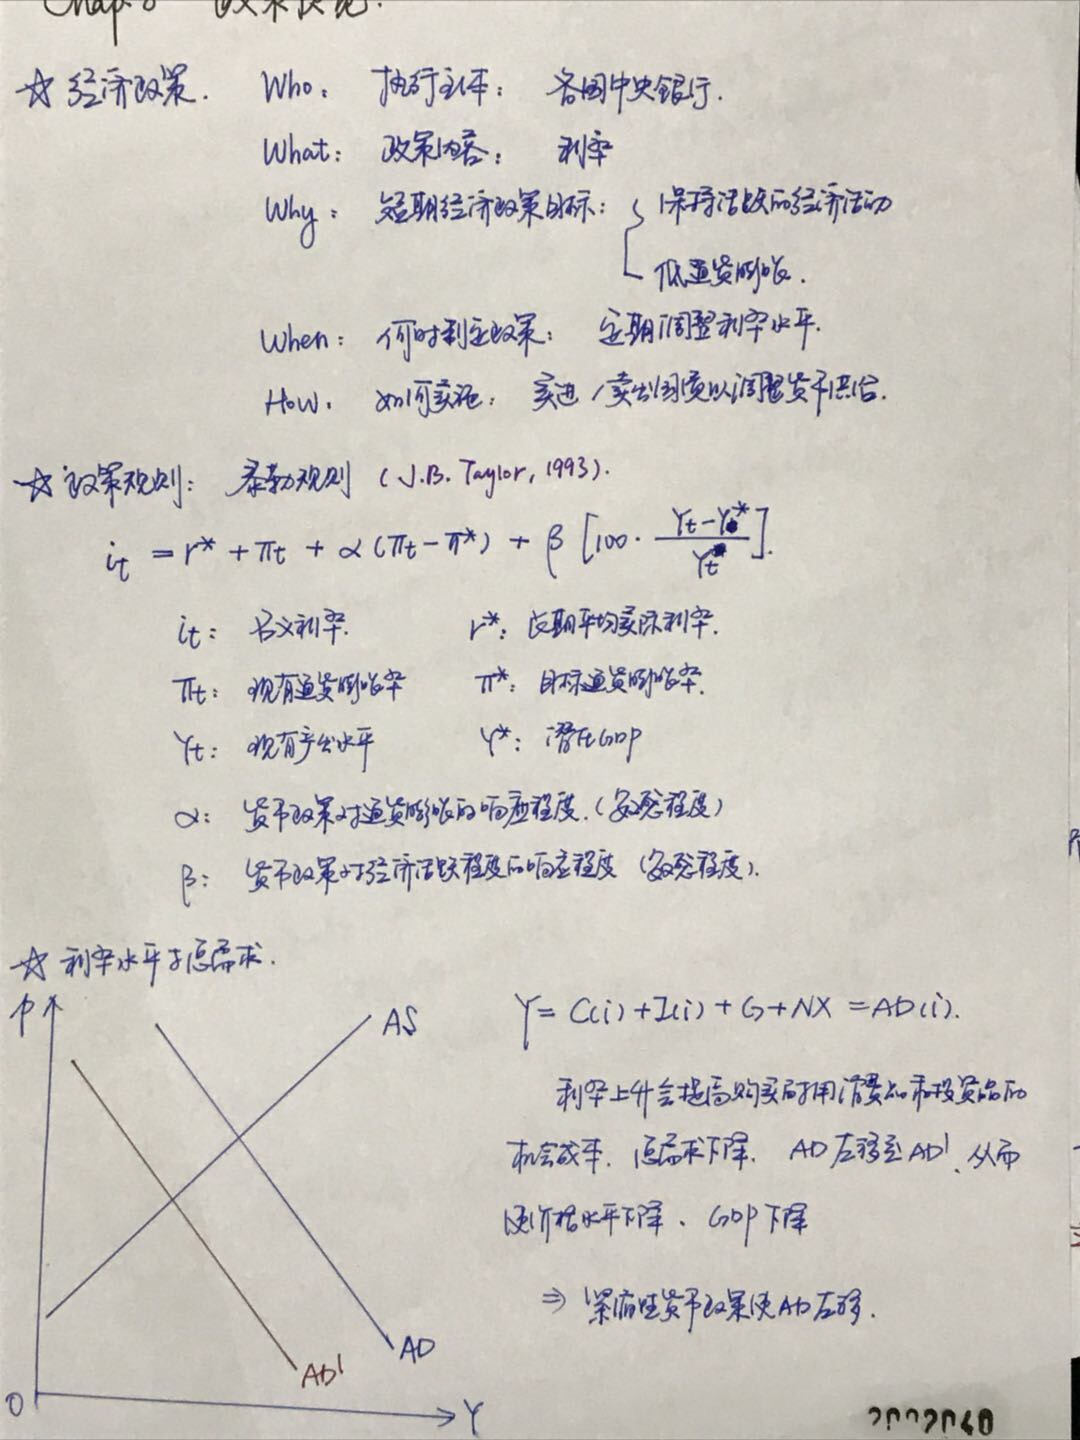 ☆ 经济政策. Who: 执行主体: 各国中央银行.
What: 政策内容: 利率
Why: 短期经济政策目标: { 保持活跃的经济活动
低通货膨胀.
When: 何时制定政策: 定期调整利率水平.
How. 如何实施: 买进/卖出国债以调整货币供给.
☆ 政策规则: 泰勒规则 (J.B. Taylor, 1993).
it = r* + πt + α(πt - π*) + β [100 · (Yt - Y*)/Yt*].
it: 名义利率. r*: 长期平均实际利率.
πt: 现有通货膨胀率 π*: 目标通货膨胀率.
Yt: 现有产出水平 Y*: 潜在GDP
α: 货币政策对通货膨胀的响应程度.(敏感程度)
β: 货币政策对经济活跃程度的响应程度 (敏感程度).
☆ 利率水平与总需求.
P AS Y = C(i) + I(i) + G + NX = AD(i).
利率上升会提高购买耐用消费品和投资品的
机会成本. 总需求下降. AD左移至AD'. 从而
使价格水平下降、GDP下降
⇒ 紧缩性货币政策使AD左移.
AD
AD'
O Y